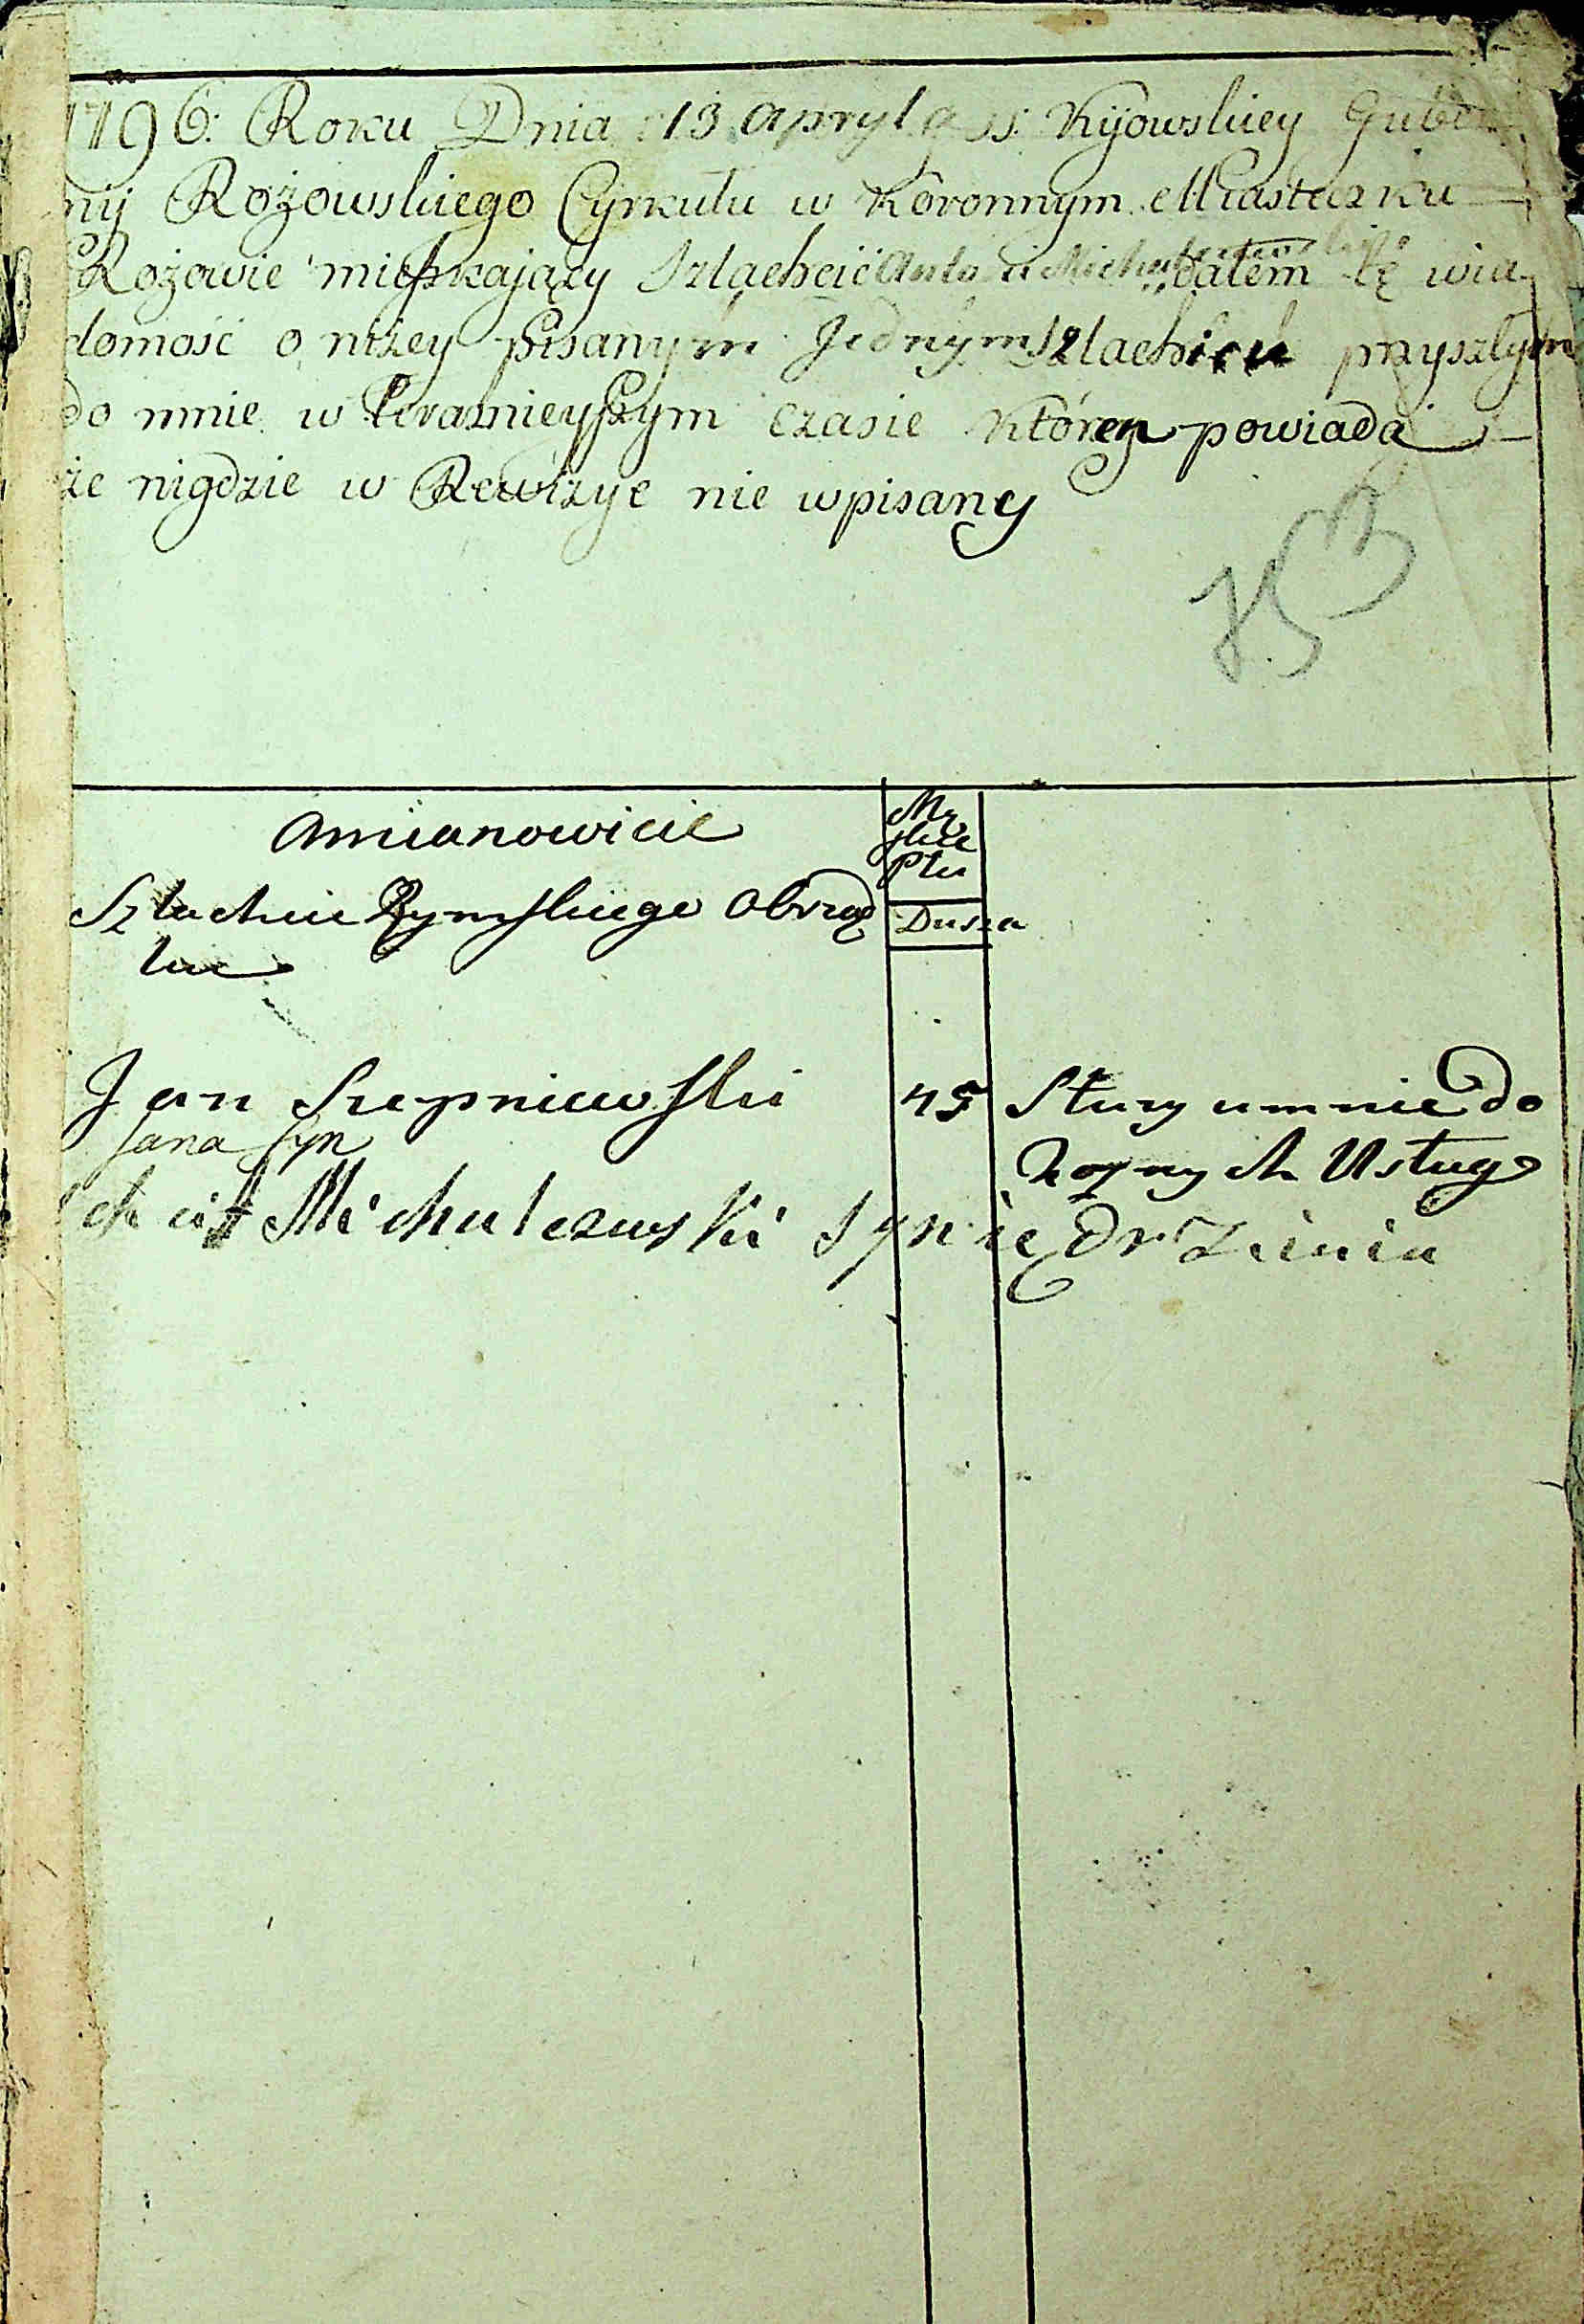 1796: Roku Dnia 13 Apryla ss: Kyiowskiey Guber
nij Rożowskiego Cyrkułu w Koronnym Miasteczku
Rożowie mieszkaiący Szlachcic Anto ni dałem tę wia
domość o niżey pisanym Jednym Szlachicu przyszłym
do mnie w teraznieyszym czasie któren powiada
że nigdzie w Rewizye nie wpisany
753
Amianowicie
Mę
skie
Płci
Szlachcic Rzymskiego Obrząd
Dusza
ku
Jan Stepniewski
45
Służy umnie do
Jana Syn
Rożnych Usług
Michalczewski Syn ięDrzeia